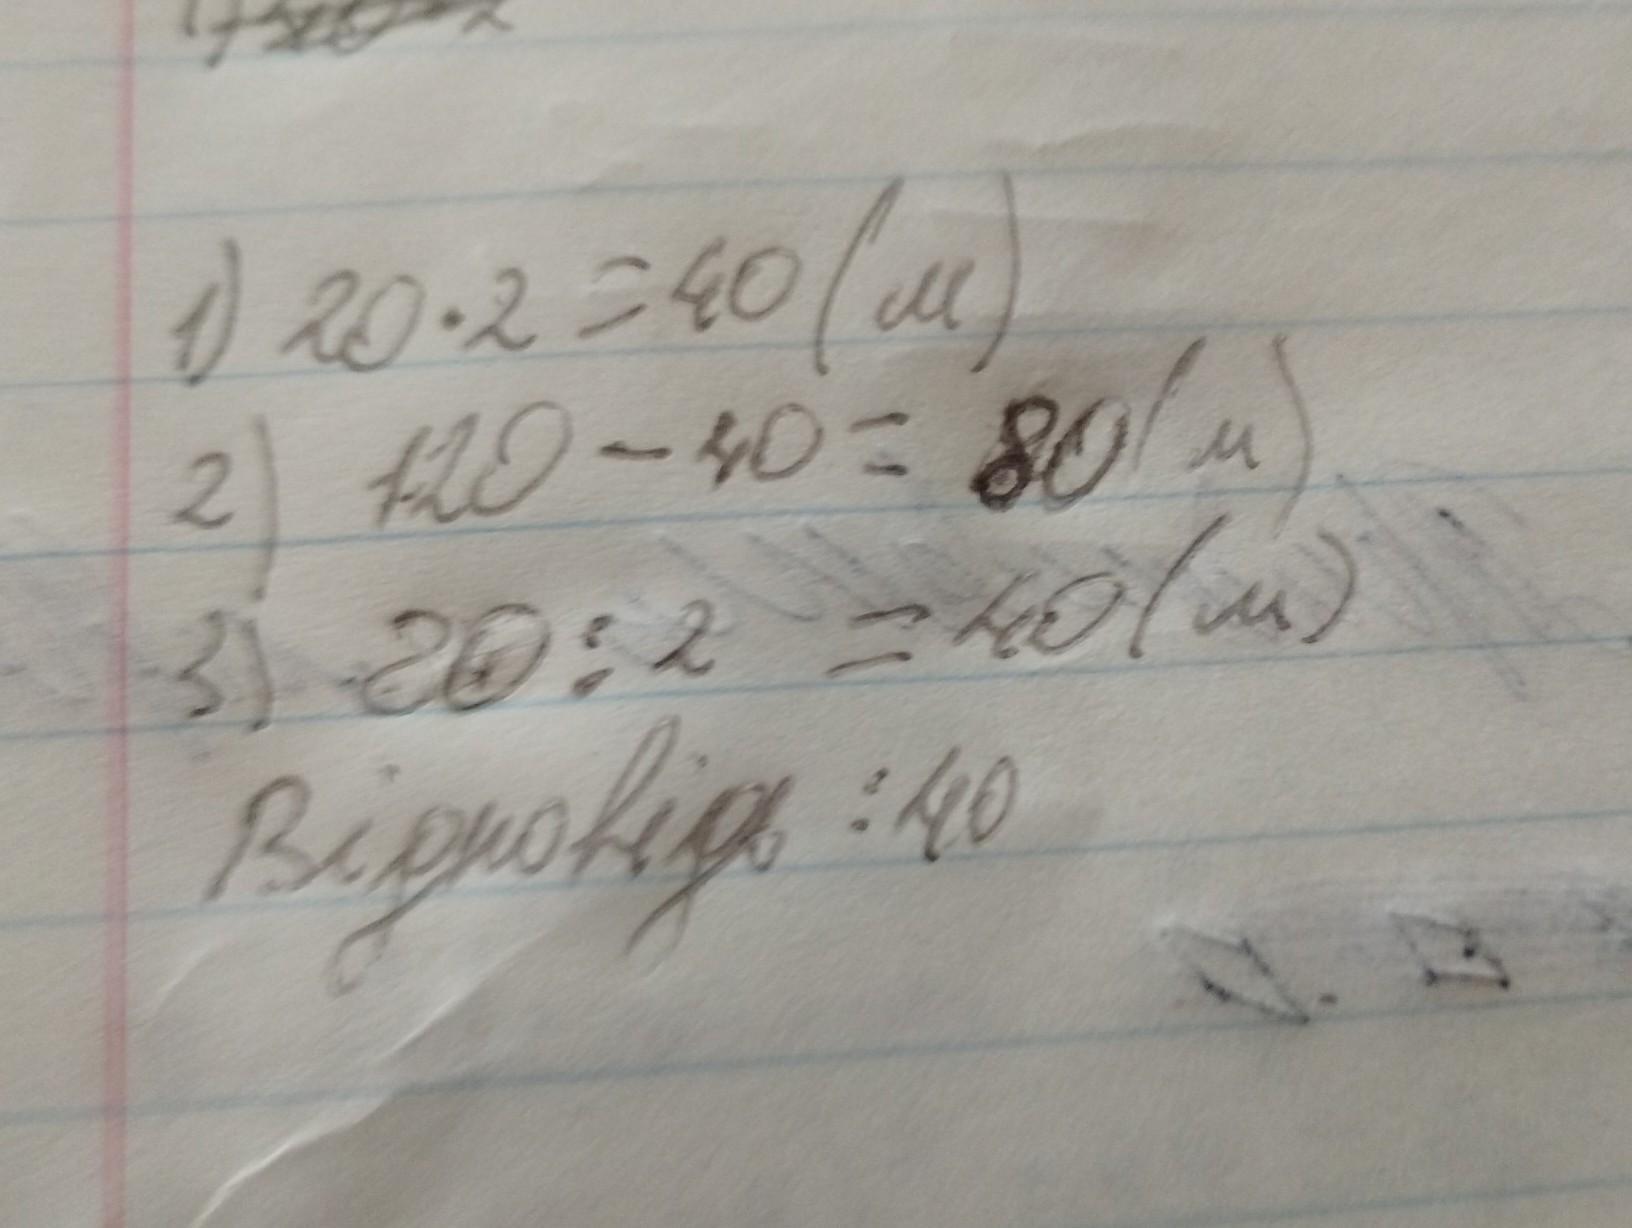 1) 20 · 2 = 40 (м)
2) 120 - 40 = 80 (м)
3) 80 : 2 = 40 (м)
Відповідь : 40